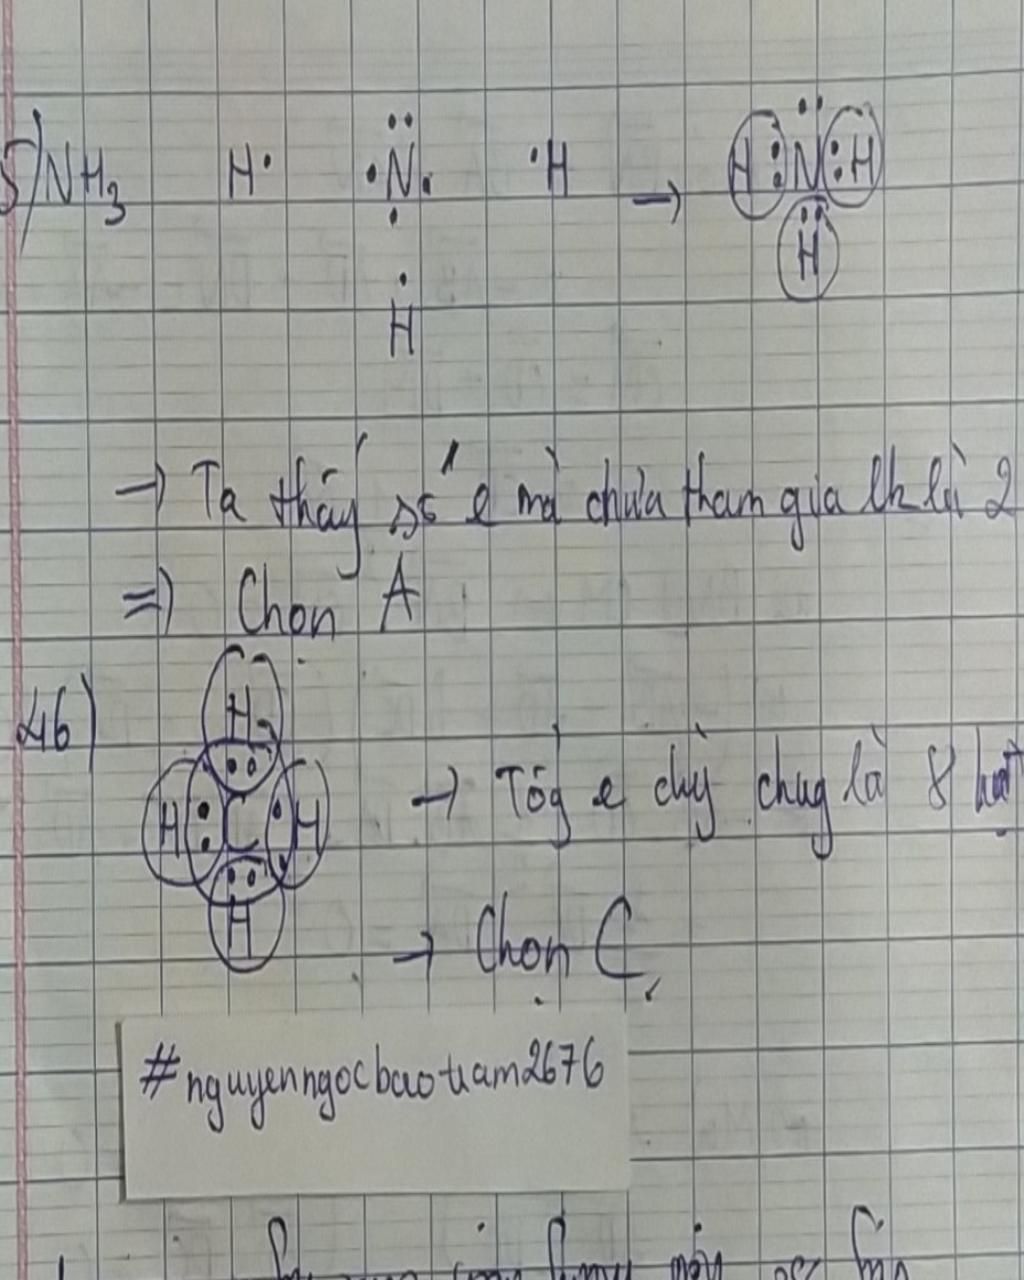 5) NH3 H· ·N· ·H → H:N:H
H
H
→ Ta thấy số e mà chưa tham gia lk là 2
=> Chọn A
46)
H
H C H → Tổg e dùg chug là 8 hạt
H
→ Chọn C
#nguyenngocbaotram2676